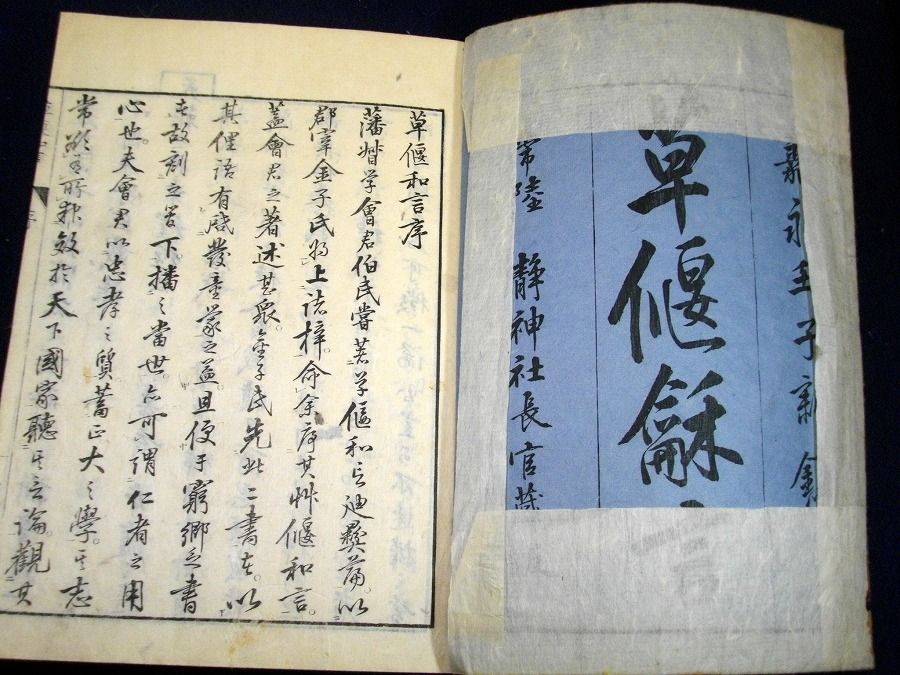 嘉永壬子新鐫
草偃龢
常陸 靜神社長官蔵
草偃和言序
藩督学會君伯民嘗著草偃和言迪彝篇以
郡宰金子氏 上諸梓命余序其艸偃和言
蓋會君之著述甚衆金子氏先此二書 以
其俚語有啟發童蒙之益且便于窮郷乏書
故刻之 下播之當世亦可謂仁者之用
心也夫會君以忠孝之質蓄正大之學 志
常 所報效於天下國家聽其言論觀其